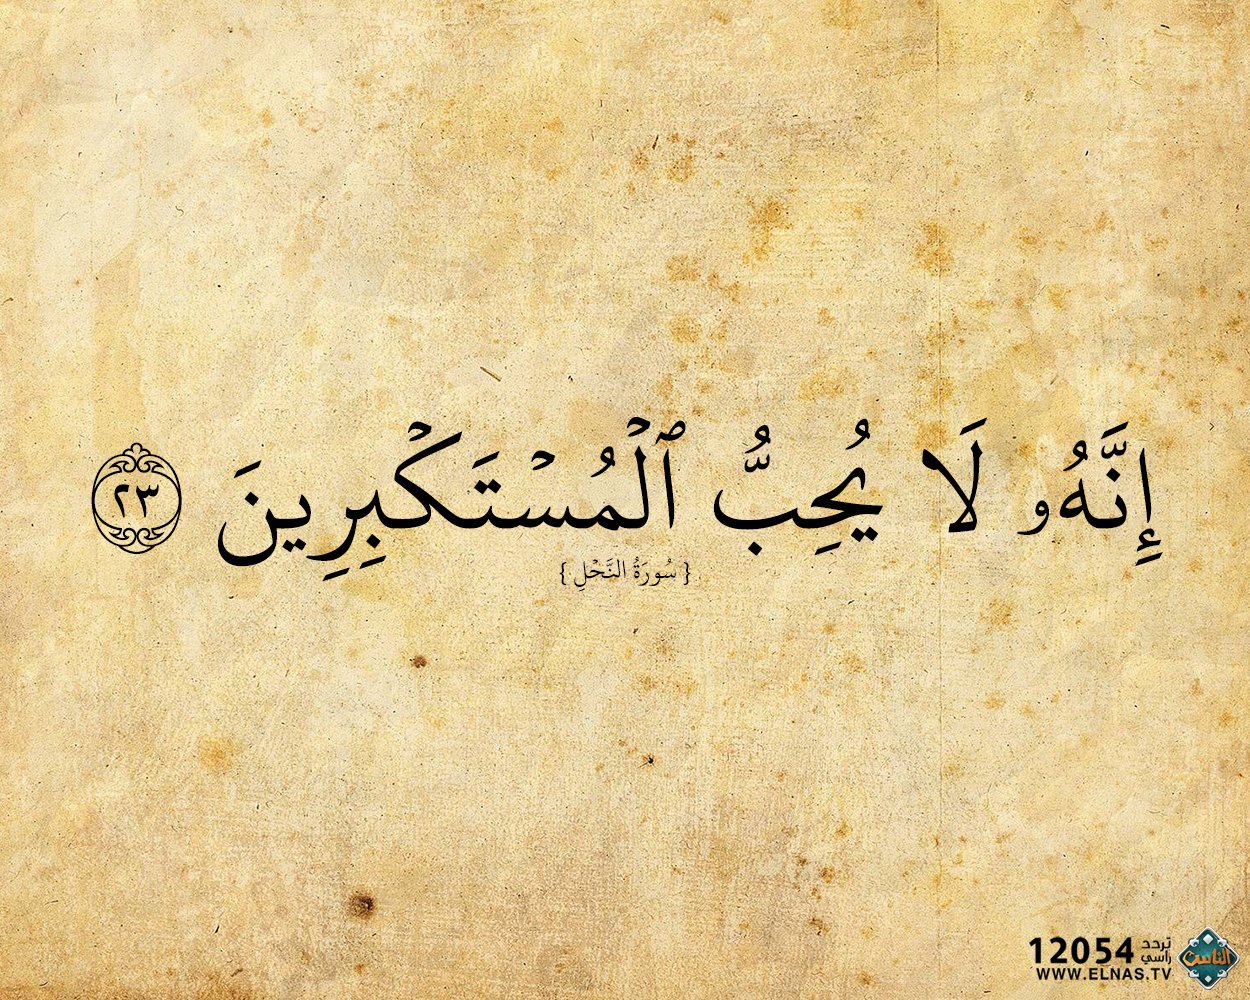 إِنَّهُۥ لَا يُحِبُّ ٱلْمُسْتَكْبِرِينَ ٢٣
{ سُورَةُ النَّحْلِ }
تردد 12054 رأسي
WWW.ELNAS.TV
الناس